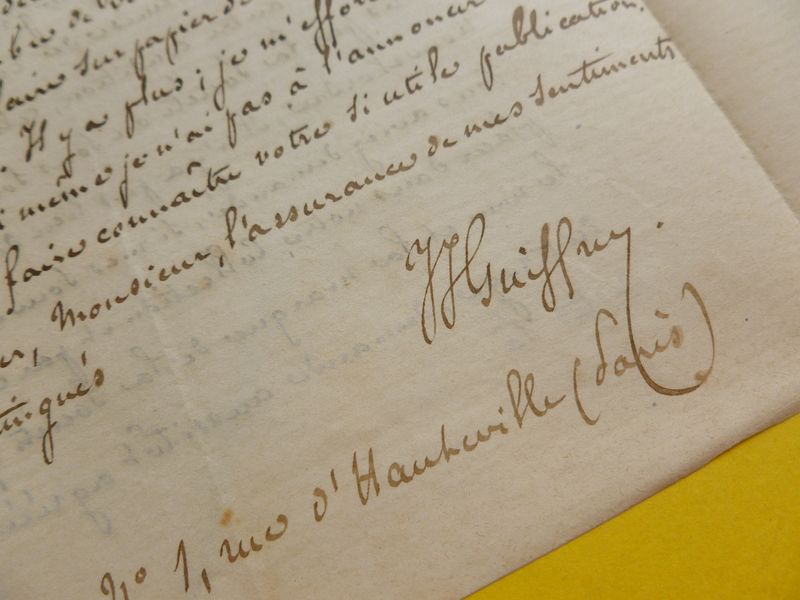 faire sur papier de
. Il y a plus ; je m'effor
même je n'ai pas à l'annoncer
faire connaître votre si utile publication.
Monsieur, l'assurance de mes sentiments
JJ Guiffrey.
N° 1, rue d'Hauteville (Paris)